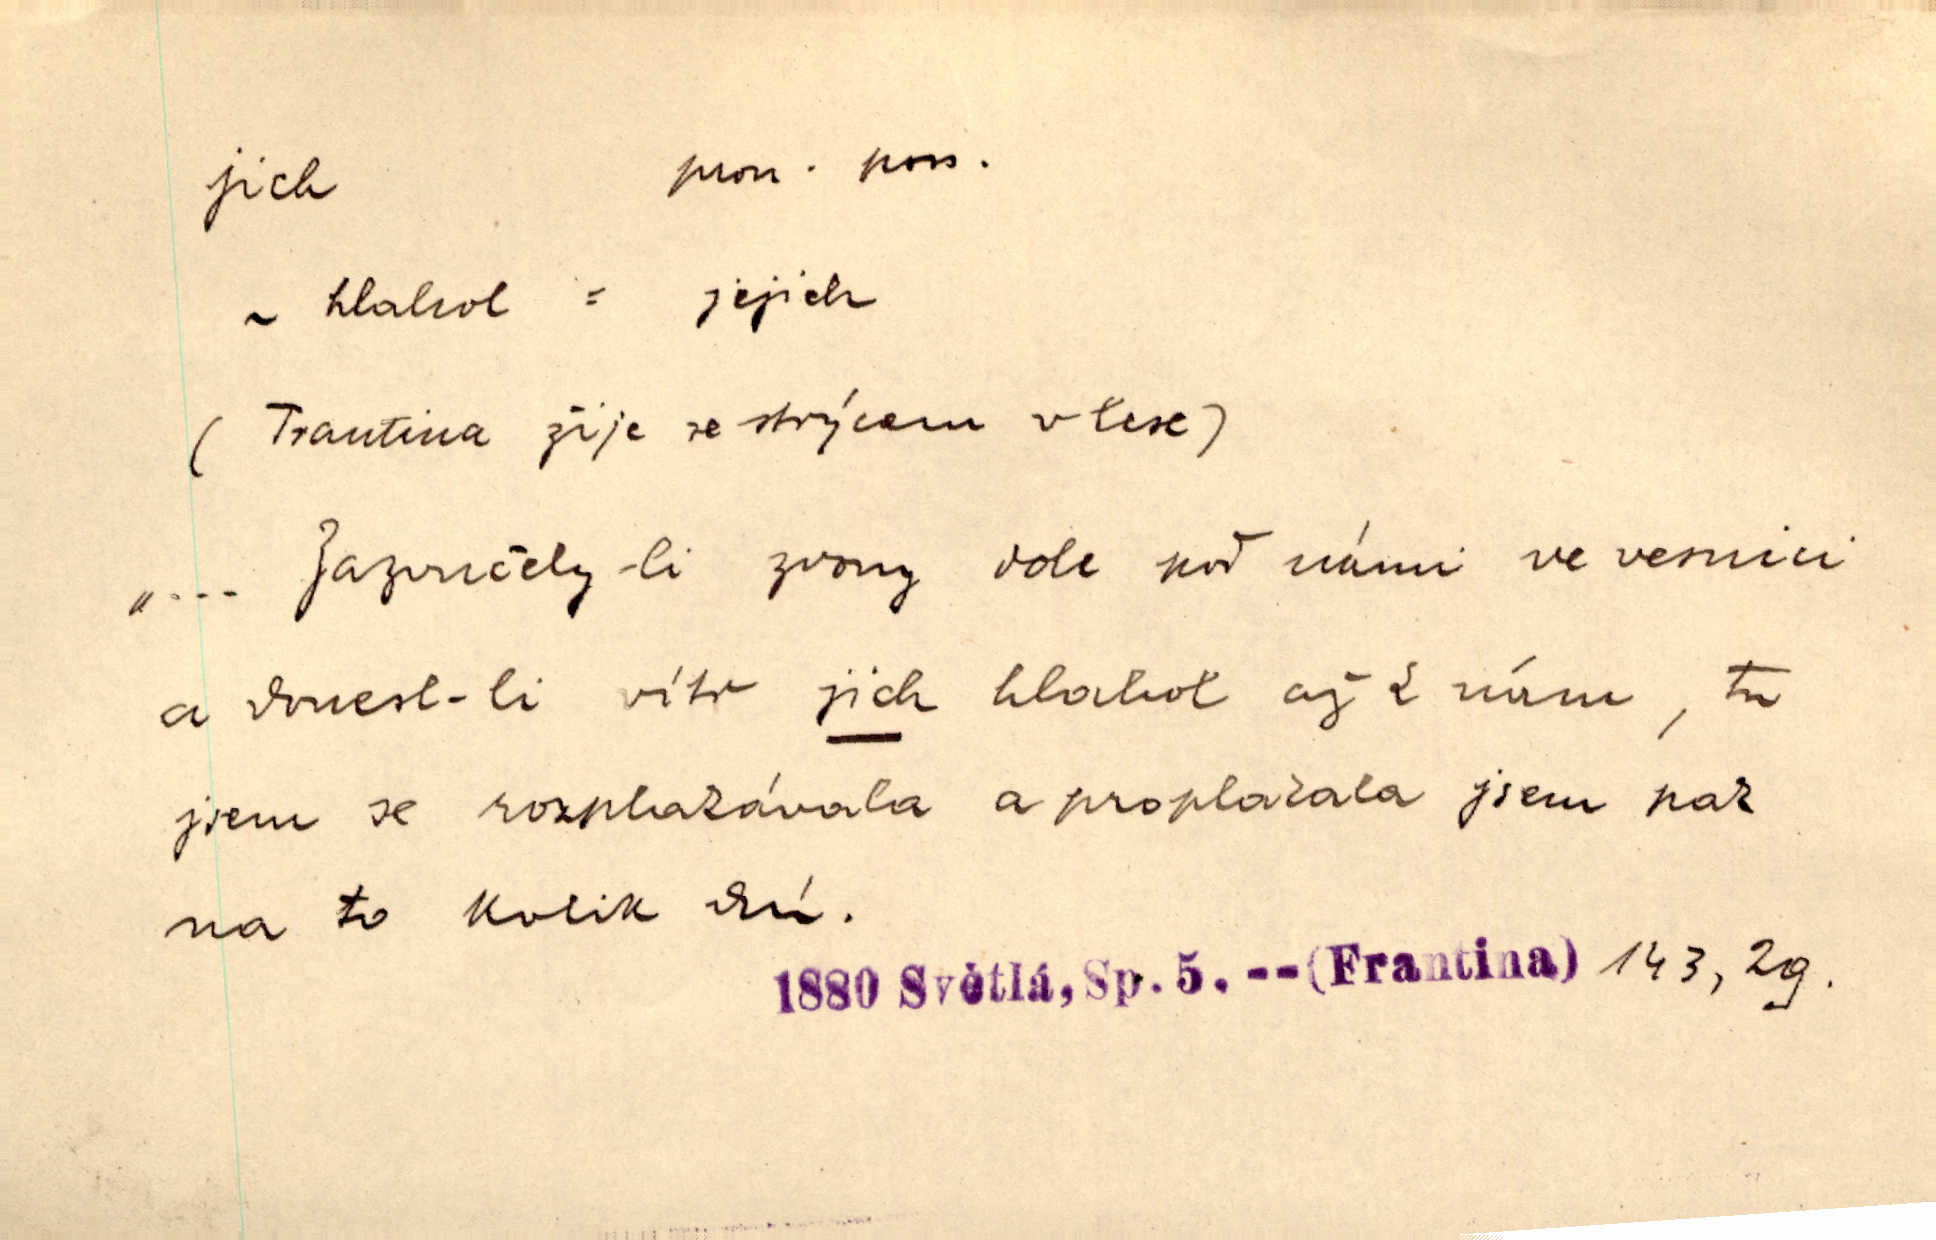 jich pron. poss.
~ hlahol = jejich
(Frantina žije se strýcem v lese)
"... Zazvučely-li zvony dole pod námi ve vesnici
a donesl-li vítr jich hlahol až k nám, tu
jsem se rozplakávala a proplakala jsem pak
na to kolik dní.
1880 Světlá, Sp. 5. -- (Frantina) 143, 2g.